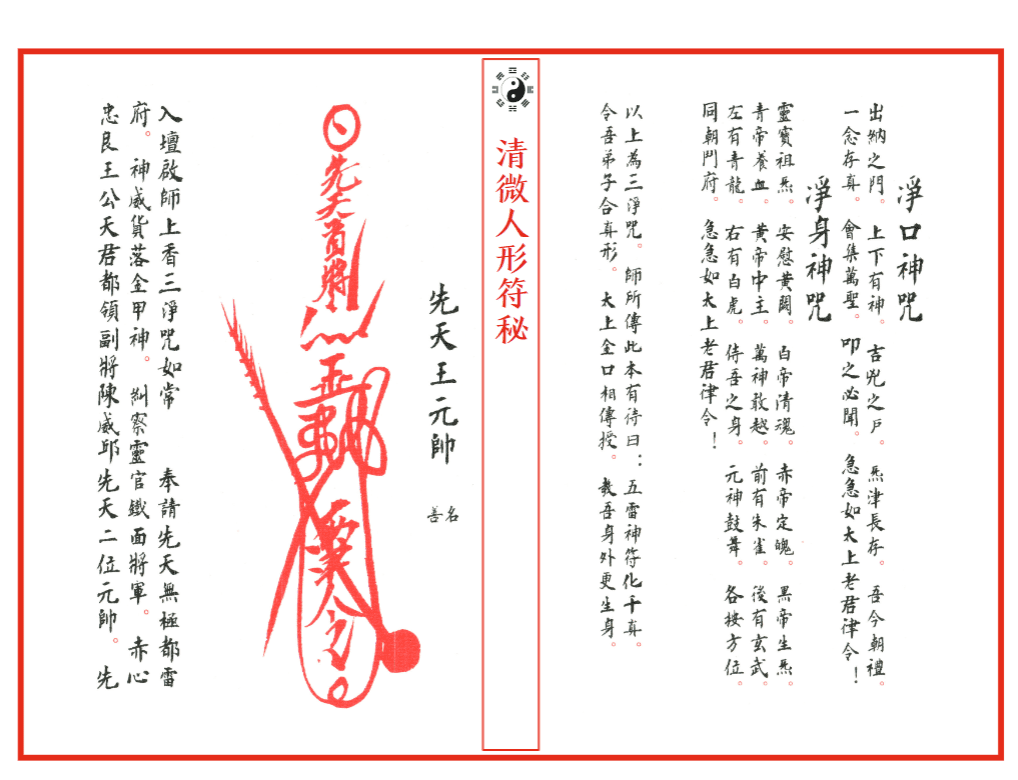 淨口神咒
出納之門。上下有神。吉兇之戶。炁津長存。吾今朝禮。
一念存真。會集萬聖。叩之必聞。急急如太上老君律令！
淨身神咒
靈寶祖炁。安慰黃闕。白帝清魂。赤帝定魄。黑帝生炁。
青帝養血。黃帝中主。萬神敢越。前有朱雀。後有玄武。
左有青龍。右有白虎。侍吾之身。元神鼓舞。各按方位。
同朝門府。急急如太上老君律令！
以上為三淨咒。師所傳此本有待曰：五雷神符化千真。
令吾弟子合真形。太上金口相傳授。教吾身外更生身。
清微人形符秘
先天王元帥
名善
先天首將
入壇啟師上香三淨咒如常 奉請先天無極都雷
府。神威貨落金甲神。糾察靈官鐵面將軍。赤心
忠良王公天君都領副將陳威邱先天二位元帥。先